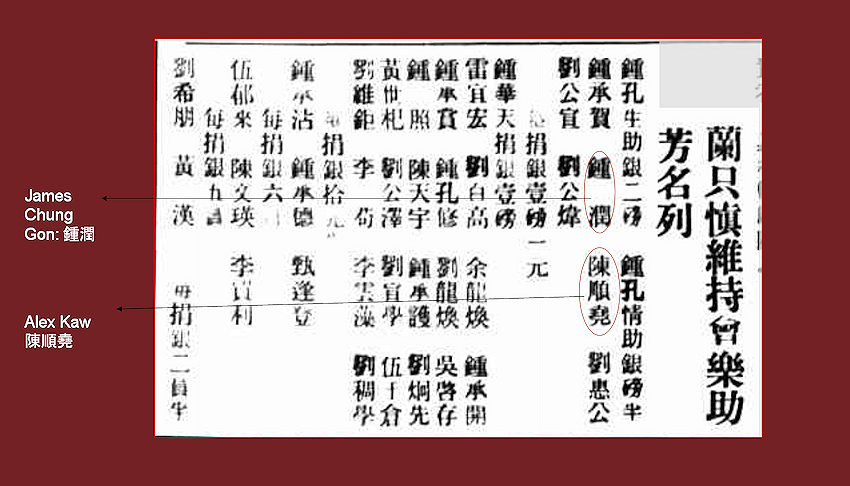 蘭只慎維持會樂助
芳名列
鍾孔生助銀二磅 鍾孔情助銀磅半
鍾承賀 鍾潤 陳順堯 劉惠公
劉公官 劉公煒
捐銀壹磅一元
鍾華天捐銀壹磅
雷宜宏 劉自高 余龍煥 鍾承開
鍾承賞 鍾孔修 劉龍煥 吳啓存
鍾照 陳天宇 鍾承護 劉炯先
黃世杞 劉公澤 劉官學 伍于倉
劉維鉅 李荀 李雲藻 劉稠學
捐銀拾元
鍾承沾 鍾承德 甄逢登
每捐銀六
伍郁來 陳文瑛 李利
每捐銀
劉希朋 黃漢 每捐銀二員半
James
Chung
Gon: 鍾潤
Alex Kaw
陳順堯